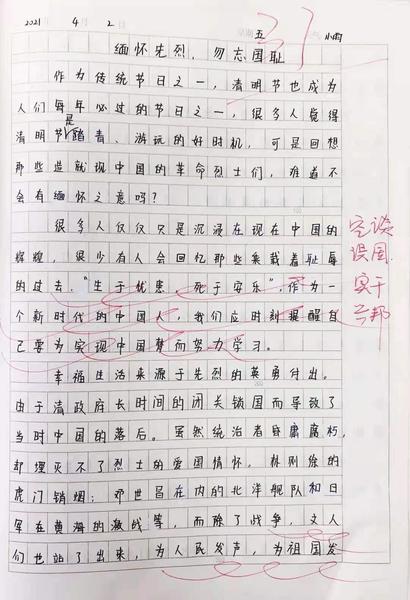 2021 年 4 月 2 日 星期 五 天气 小雨
缅怀先烈，勿忘国耻
作为传统节日之一，清明节也成为
人们每年必过的节日之一，很多人觉得
清明节是踏青、游玩的好时机，可是回想
那些造就现中国的革命烈士们，难道不
会有缅怀之意吗？
很多人仅仅只是沉浸在现在中国的
辉煌，很少有人会回忆那些乘载着耻辱
的过去，“生于忧患，死于安乐”，作为一
个新时代的中国人，我们应时刻提醒自
己要为实现中国梦而努力学习。
幸福生活来源于先烈的英勇付出。
由于清政府长时间的闭关锁国而导致了
当时中国的落后。虽然统治者昏庸腐朽，
却埋灭不了烈士的爱国情怀，林则徐的
虎门销烟；邓世昌在内的北洋舰队和日
军在黄海的激战等，而除了战争，文人
们也站了出来，为人民发声，为祖国发
空谈
误国
实干
兴邦